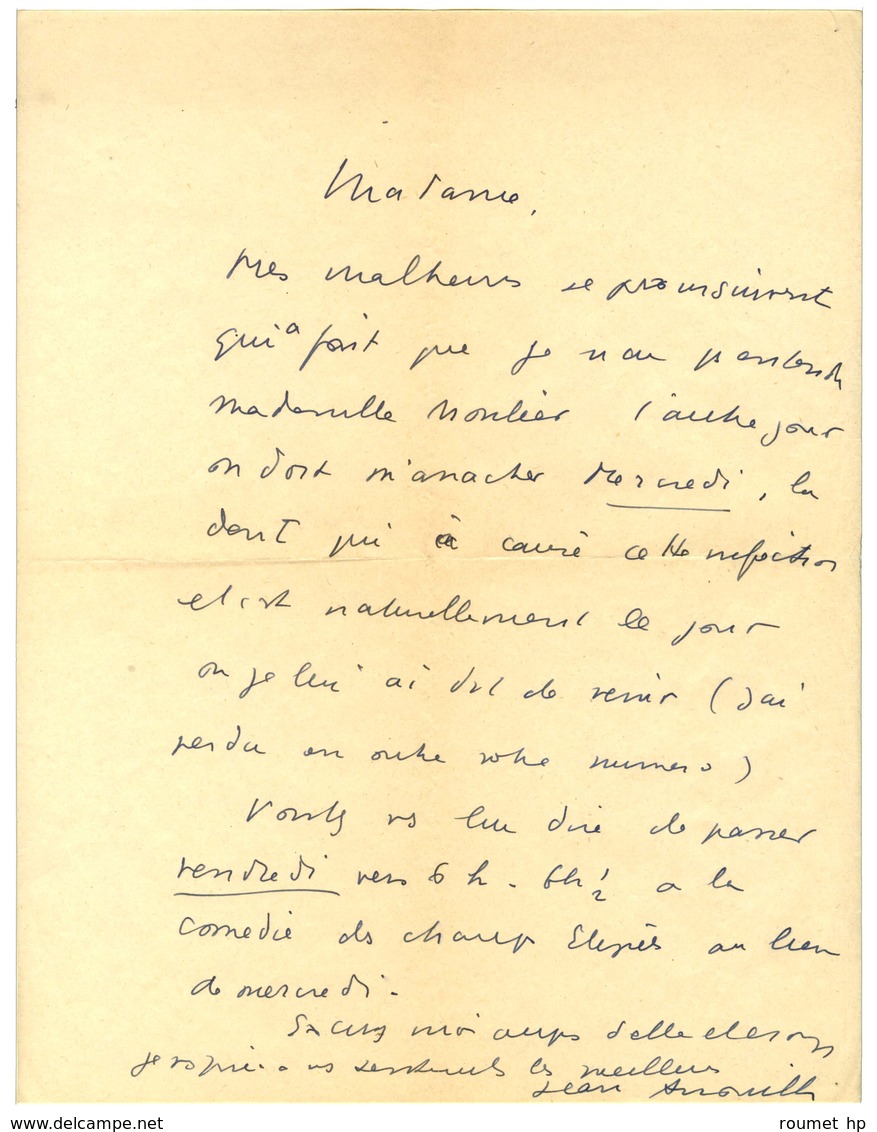 Madame,
mes malheurs se poursuivent
qui a fait que je n'ai pu entendre
mademoiselle l'autre jour
on doit m'arracher Mercredi, la
dent qui a causé cette infection
et c'est naturellement le jour
ou je lui ai dit de venir (j'ai
perdu en outre votre numero)
Voulez vs lui dire de passer
vendredi vers 6 h. 6h ½ a la
comedie des champs Elysées au lieu
de mercredi.
Excusez moi auprès d'elle et croyez
je vs prie a vs sentiments les meilleurs
Jean Anouilh
roumet hp
www.delcampe.net